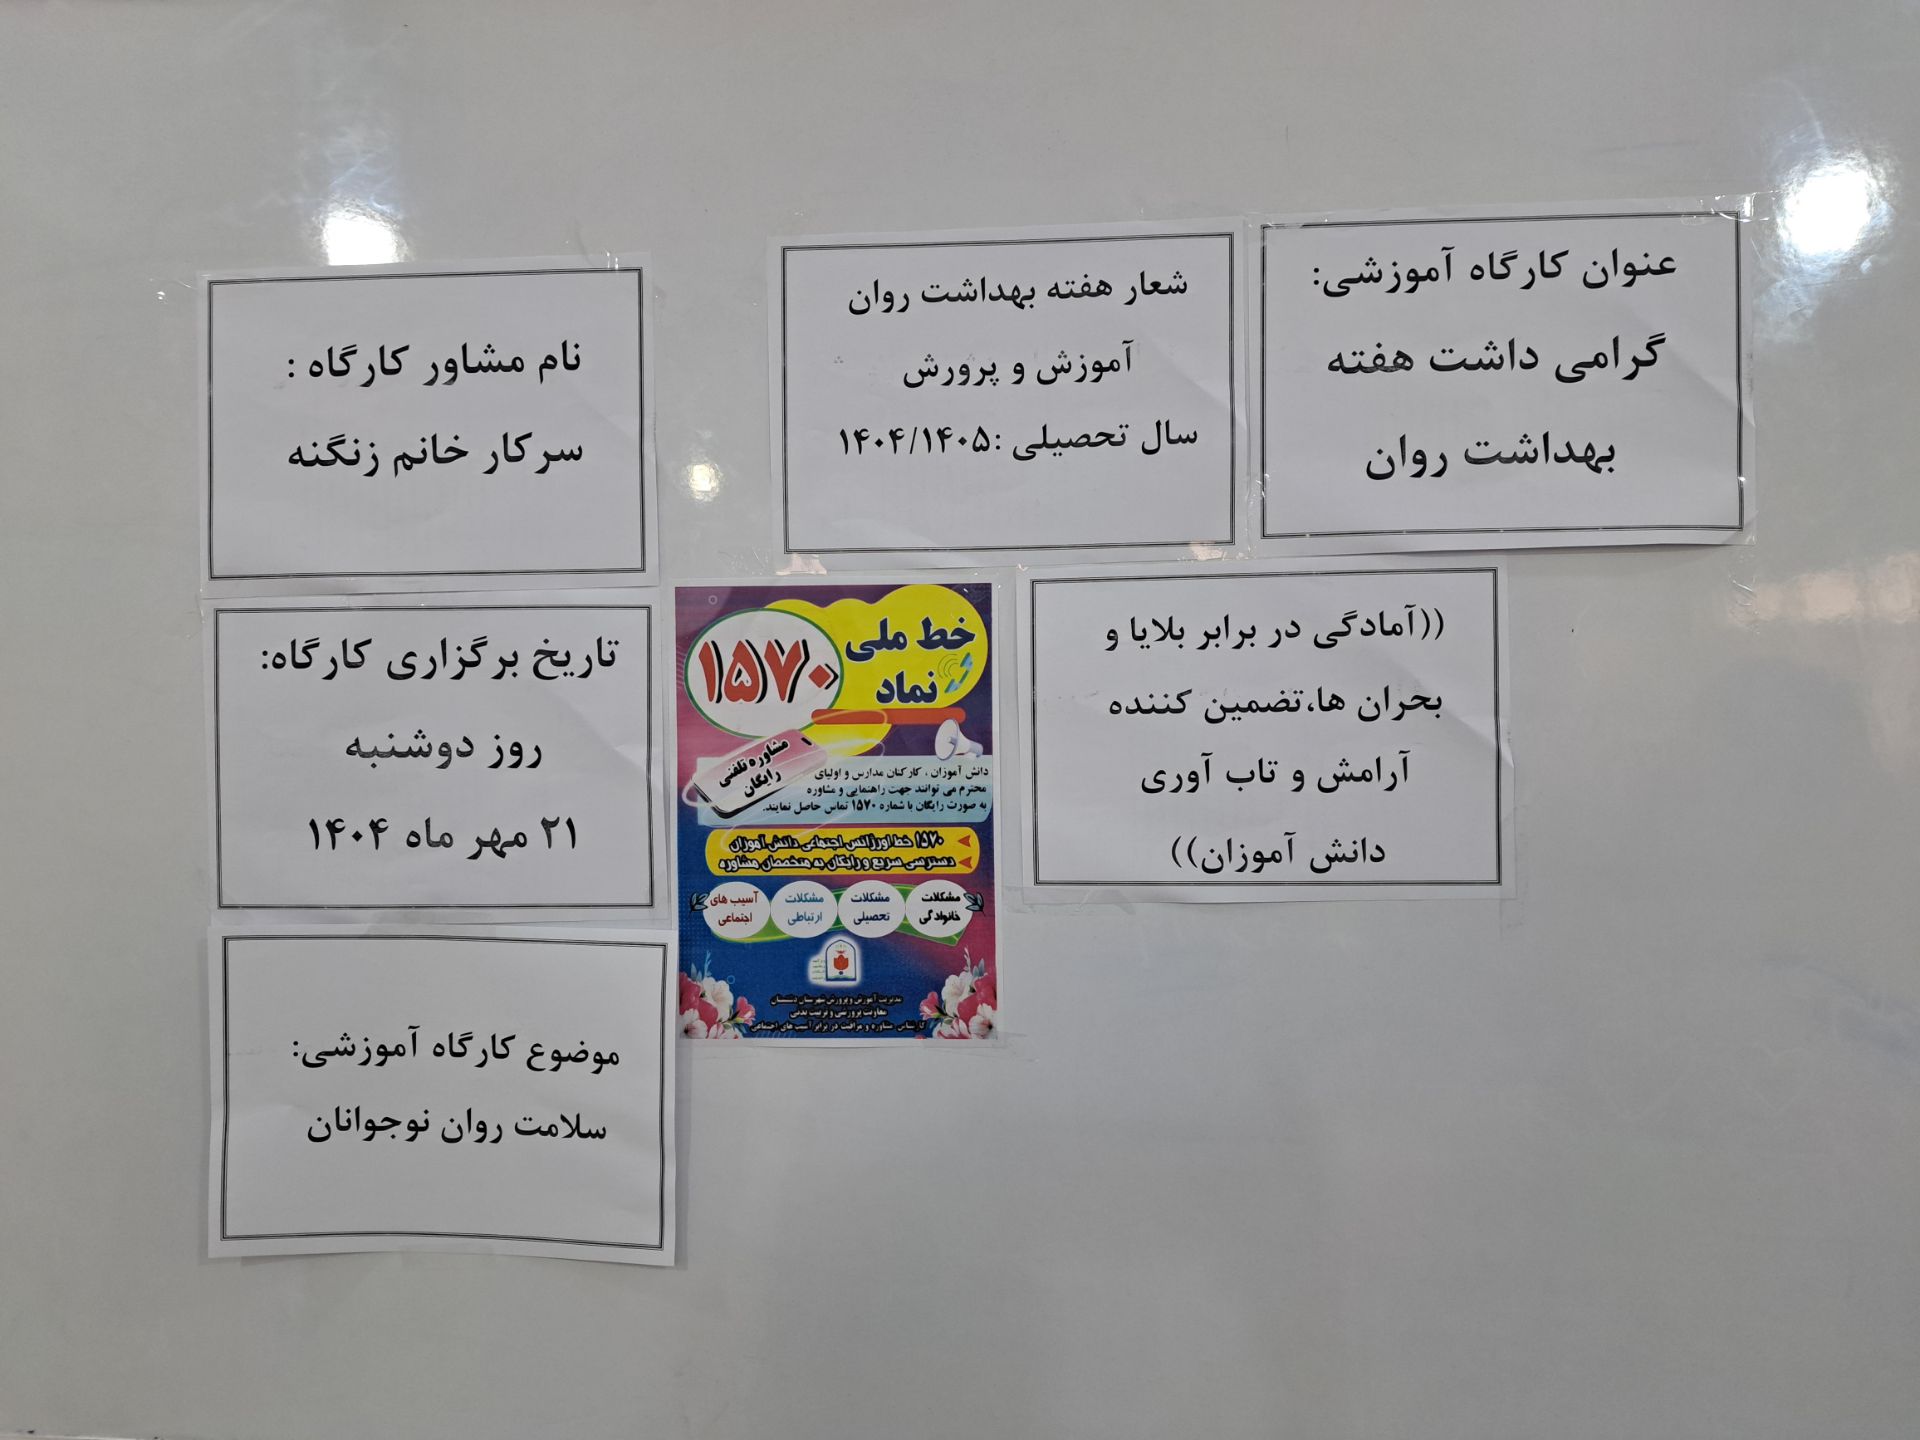 عنوان کارگاه آموزشی:
گرامی داشت هفته
بهداشت روان
شعار هفته بهداشت روان
آموزش و پرورش
سال تحصیلی :۱۴۰۴/۱۴۰۵
((آمادگی در برابر بلایا و
بحران ها،تضمین کننده
آرامش و تاب آوری
دانش آموزان))
نام مشاور کارگاه :
سرکار خانم زنگنه
تاریخ برگزاری کارگاه:
روز دوشنبه
۲۱ مهر ماه ۱۴۰۴
موضوع کارگاه آموزشی:
سلامت روان نوجوانان
خط ملی
نماد
۱۵۷۰
مشاوره تلفنی
رایگان
دانش آموزان ، کارکنان مدارس و اولیای
محترم می توانند جهت راهنمایی و مشاوره
به صورت رایگان با شماره ۱۵۷۰ تماس حاصل نمایند.
۱۵۷۰ خط اورژانس اجتماعی دانش آموزان
دسترسی سریع و رایگان به متخصصان مشاوره
مشکلات
خانوادگی
مشکلات
تحصیلی
مشکلات
ارتباطی
آسیب های
اجتماعی
مدیریت آموزش و پرورش شهرستان دشتستان
معاونت پرورشی و تربیت بدنی
کارشناس مشاوره و مراقبت در برابر آسیب های اجتماعی